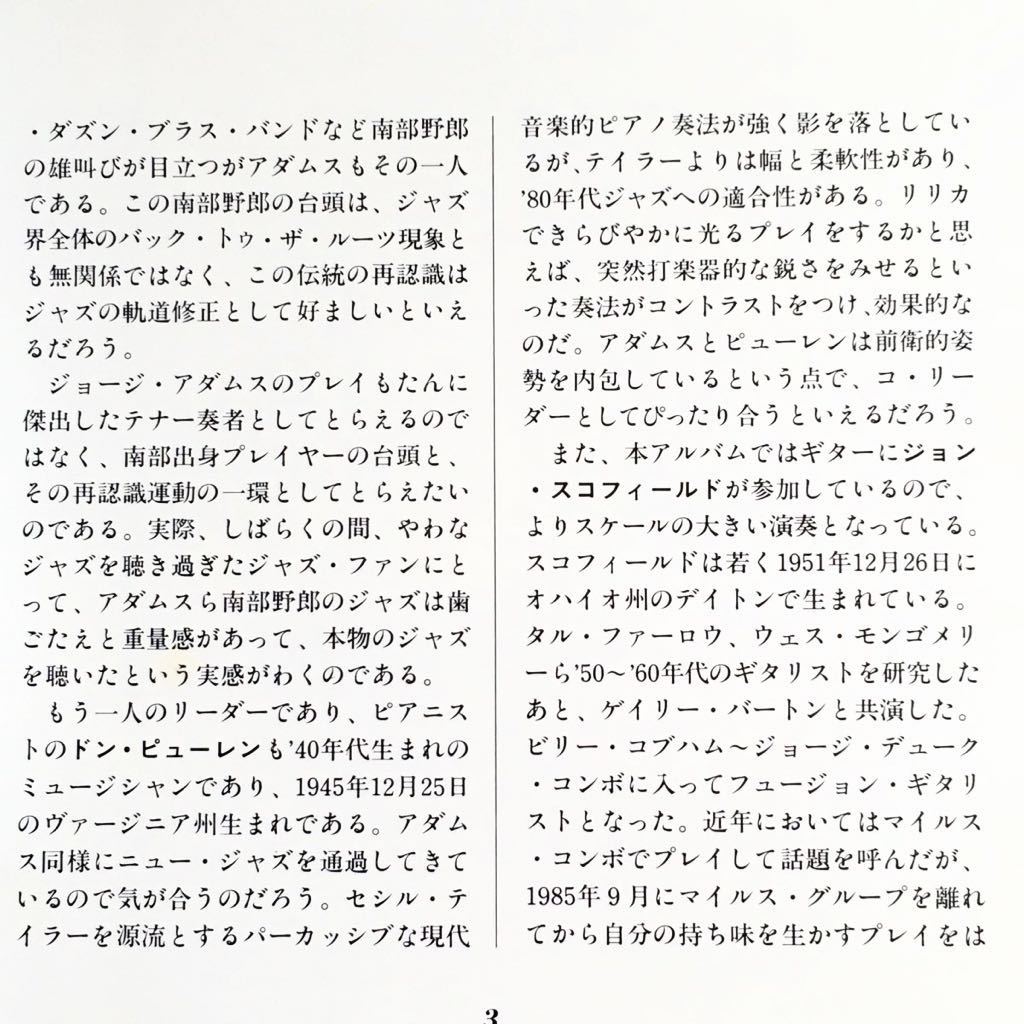 ・ダズン・ブラス・バンドなど南部野郎
の雄叫びが目立つがアダムスもその一人
である。この南部野郎の台頭は、ジャズ
界全体のバック・トゥ・ザ・ルーツ現象と
も無関係ではなく、この伝統の再認識は
ジャズの軌道修正として好ましいといえ
るだろう。
　ジョージ・アダムスのプレイもたんに
傑出したテナー奏者としてとらえるので
はなく、南部出身プレイヤーの台頭と、
その再認識運動の一環としてとらえたい
のである。実際、しばらくの間、やわな
ジャズを聴き過ぎたジャズ・ファンにと
って、アダムスら南部野郎のジャズは歯
ごたえと重量感があって、本物のジャズ
を聴いたという実感がわくのである。
　もう一人のリーダーであり、ピアニス
トのドン・ピューレンも'40年代生まれの
ミュージシャンであり、1945年12月25日
のヴァージニア州生まれである。アダム
ス同様にニュー・ジャズを通過してきて
いるので気が合うのだろう。セシル・テ
イラーを源流とするパーカッシブな現代
音楽的ピアノ奏法が強く影を落としてい
るが、テイラーよりは幅と柔軟性があり、
'80年代ジャズへの適合性がある。リリカ
できらびやかに光るプレイをするかと思
えば、突然打楽器的な鋭さをみせるとい
った奏法がコントラストをつけ、効果的な
のだ。アダムスとピューレンは前衛的姿
勢を内包しているという点で、コ・リー
ダーとしてぴったり合うといえるだろう。
　また、本アルバムではギターにジョン
・スコフィールドが参加しているので、
よりスケールの大きい演奏となっている。
スコフィールドは若く1951年12月26日に
オハイオ州のデイトンで生まれている。
タル・ファーロウ、ウェス・モンゴメリ
ーら'50～'60年代のギタリストを研究した
あと、ゲイリー・バートンと共演した。
ビリー・コブハム～ジョージ・デューク
・コンボに入ってフュージョン・ギタリ
ストとなった。近年においてはマイルス
・コンボでプレイして話題を呼んだが、
1985年9月にマイルス・グループを離れ
てから自分の持ち味を生かすプレイをは
3